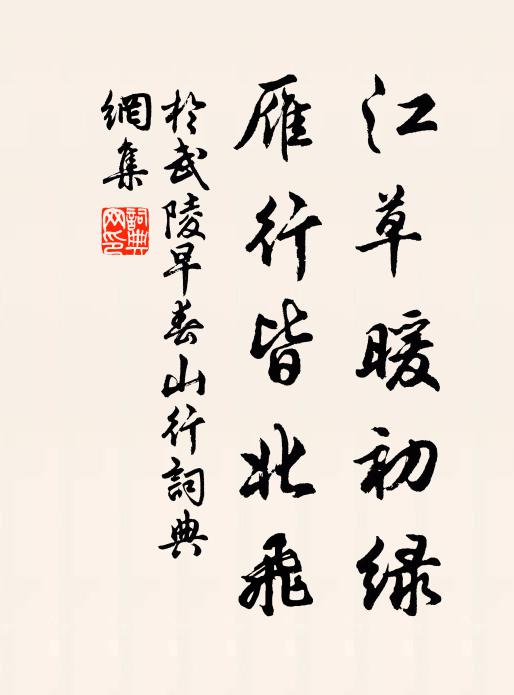 江草暖初绿
雁行皆北飛
於武陵早春山行詞典
網集
詞典
网印